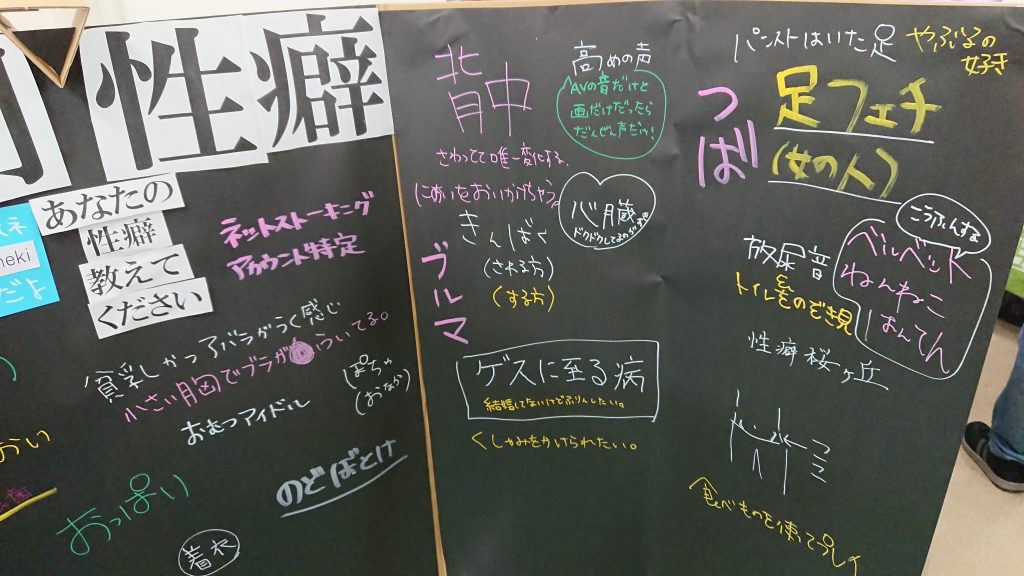 性癖
あなたの
性癖
教えて
ください
neki
だよ
ネットストーキング
アカウント特定
貧乳しかつアバラがうく感じ
小さい胸でブラが
ついてる。
おむつアイドル
(ぽちゃ
(おなか)
のどぼとけ
おっぱい
着衣
背中
さわってて唯一変化する。
においをおいかけちゃう。
高めの声
AVの音だけと
画だけだったら
だんぜん声だわ!
心臓
きんばく
(される方)
(する方)
ブルマ
ゲスに至る病
結婚してないけどふりんしたい。
くしゃみをかけられたい。
パンストはいた足
やぶるの
好き
つば
足フェチ
(女の人)
こうふんする
ベルベット
ねんねこ
はんてん
放尿音
トイレをのぞき見
性癖桜ヶ丘
食べものを使って